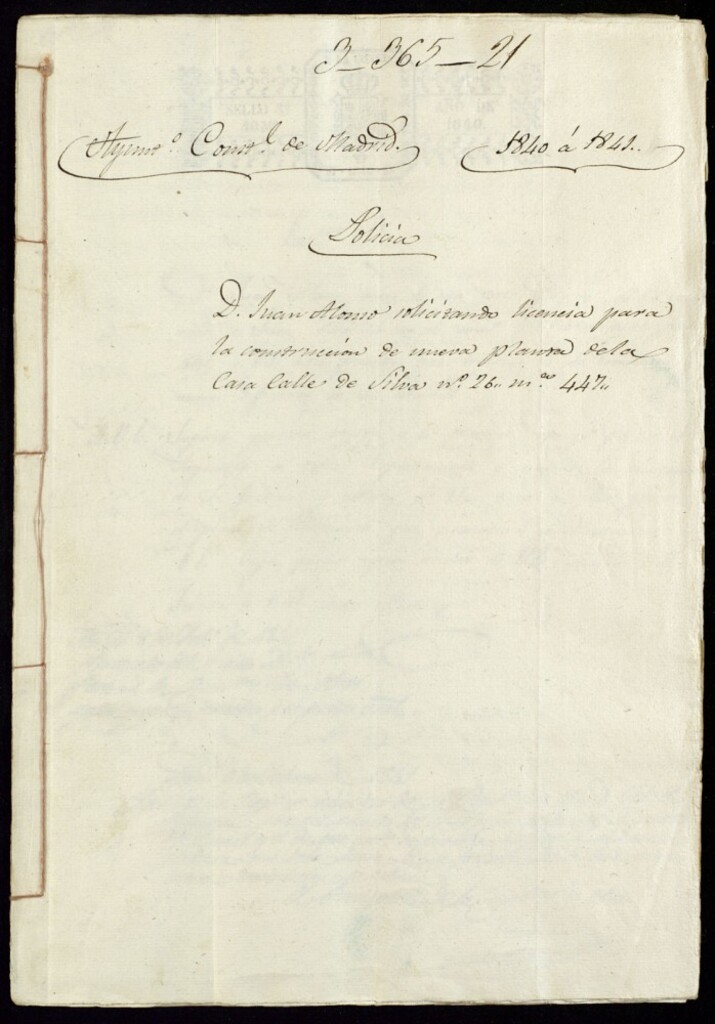 3_365_21
Ayumto. Constl. de Madrid.
1840 á 1841.
Policia
D. Juan Alonso solicitando licencia para
la construccion de nueva planta dela
Casa Calle de Silva nº. 26,, mna. 447,,